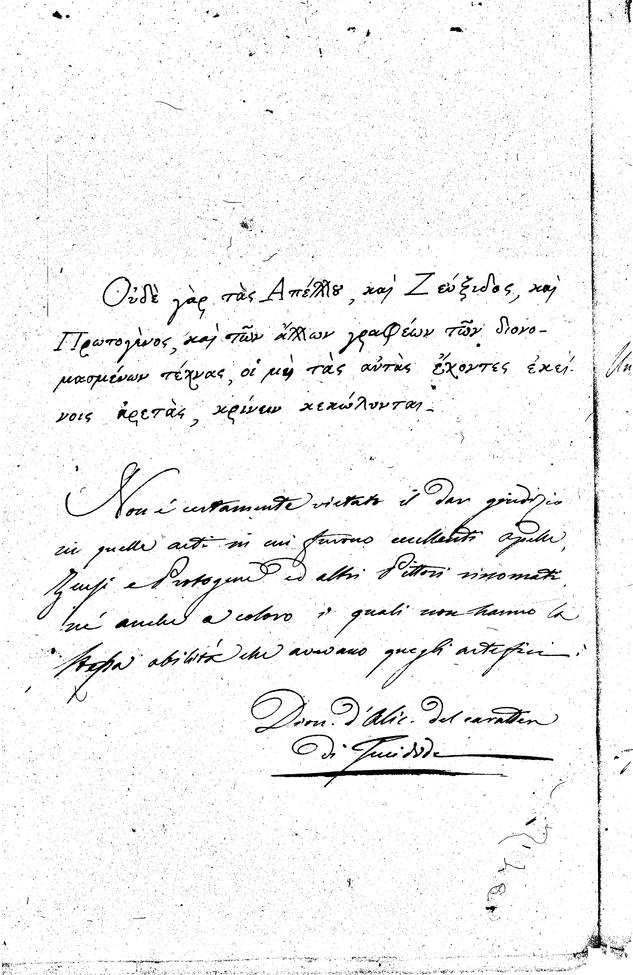 Οὐδὲ γὰρ τὰς Ἀπέλλου, καὶ Ζεύξιδος, καὶ
Πρωτογένος, καὶ τῶν ἄλλων γραφέων τῶν διονο-
μασμένων τέχνας, οἱ μὴ τὰς αὐτὰς ἔχοντες ἐκεί-
νοις ἀρετὰς, κρίνειν κεκώλυνται.
Non é certamente vietato il dar giudizio
in quelle arti in cui furono eccellenti Apelle,
Zeusi e Protogene ed altri Pittori rinomati,
né anche a coloro i quali non hanno la
stessa abilitá che avevano quegli artefici:
Dion. d'Alic. del carattere
di Tucidide